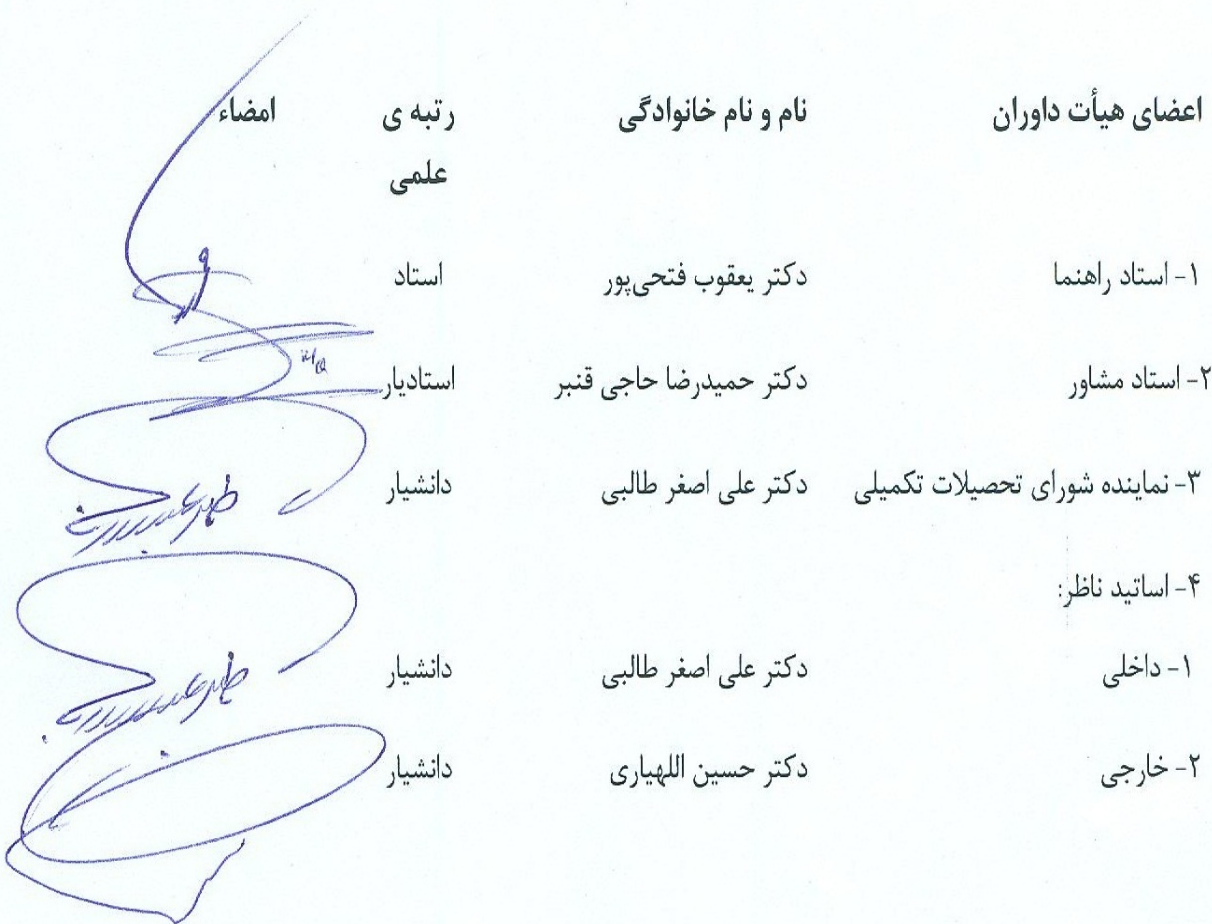 اعضای هیأت داوران نام و نام خانوادگی رتبه ی امضاء
علمی
۱- استاد راهنما دکتر یعقوب فتحی‌پور استاد
۲- استاد مشاور دکتر حمیدرضا حاجی قنبر استادیار
۳- نماینده شورای تحصیلات تکمیلی دکتر علی اصغر طالبی دانشیار
۴- اساتید ناظر:
۱- داخلی دکتر علی اصغر طالبی دانشیار
۲- خارجی دکتر حسین اللهیاری دانشیار